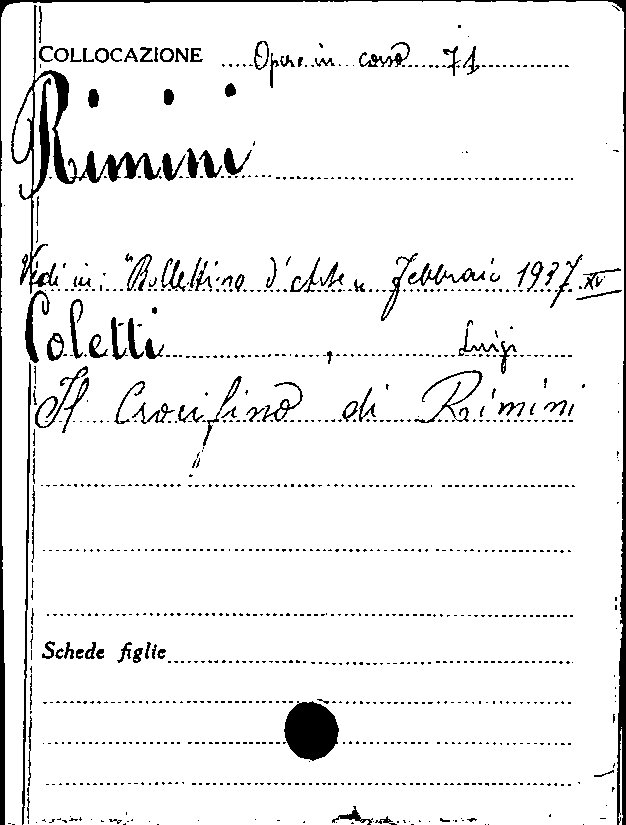 COLLOCAZIONE Opere in corso 71
Rimini
Vedi in: "Bollettino d'Arte„ Febbraio 1937 XV
Coletti, Luigi
Il Crocifisso di Rimini
Schede figlie